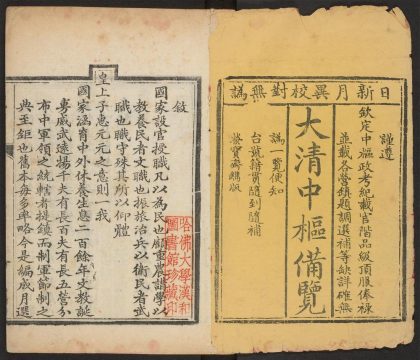 日新月異校對無譌
謹遵
欽定中樞政考紀載官階品級頂服俸祿
並載各營鎮題調選補等缺詳確無
大清中樞備覽
譌一覽便知
台銜籍貫隨到隨補
榮寶齋鐫版
敘
哈佛大學漢和
圖書館珍藏印
國家設官授職凡以為民也顧重農講學以
教養民者文職也振旅治兵以衛民者武
職也職守殊其所以仰體
皇上子惠元元之意則一我
國家涵育中外休養生息二百餘年文教誕
旉威武遠揚千夫有長百夫有長五營分
布中軍領之統轄者提鎮而制軍節制之
典至鉅也舊本每多率略今是編歲月選